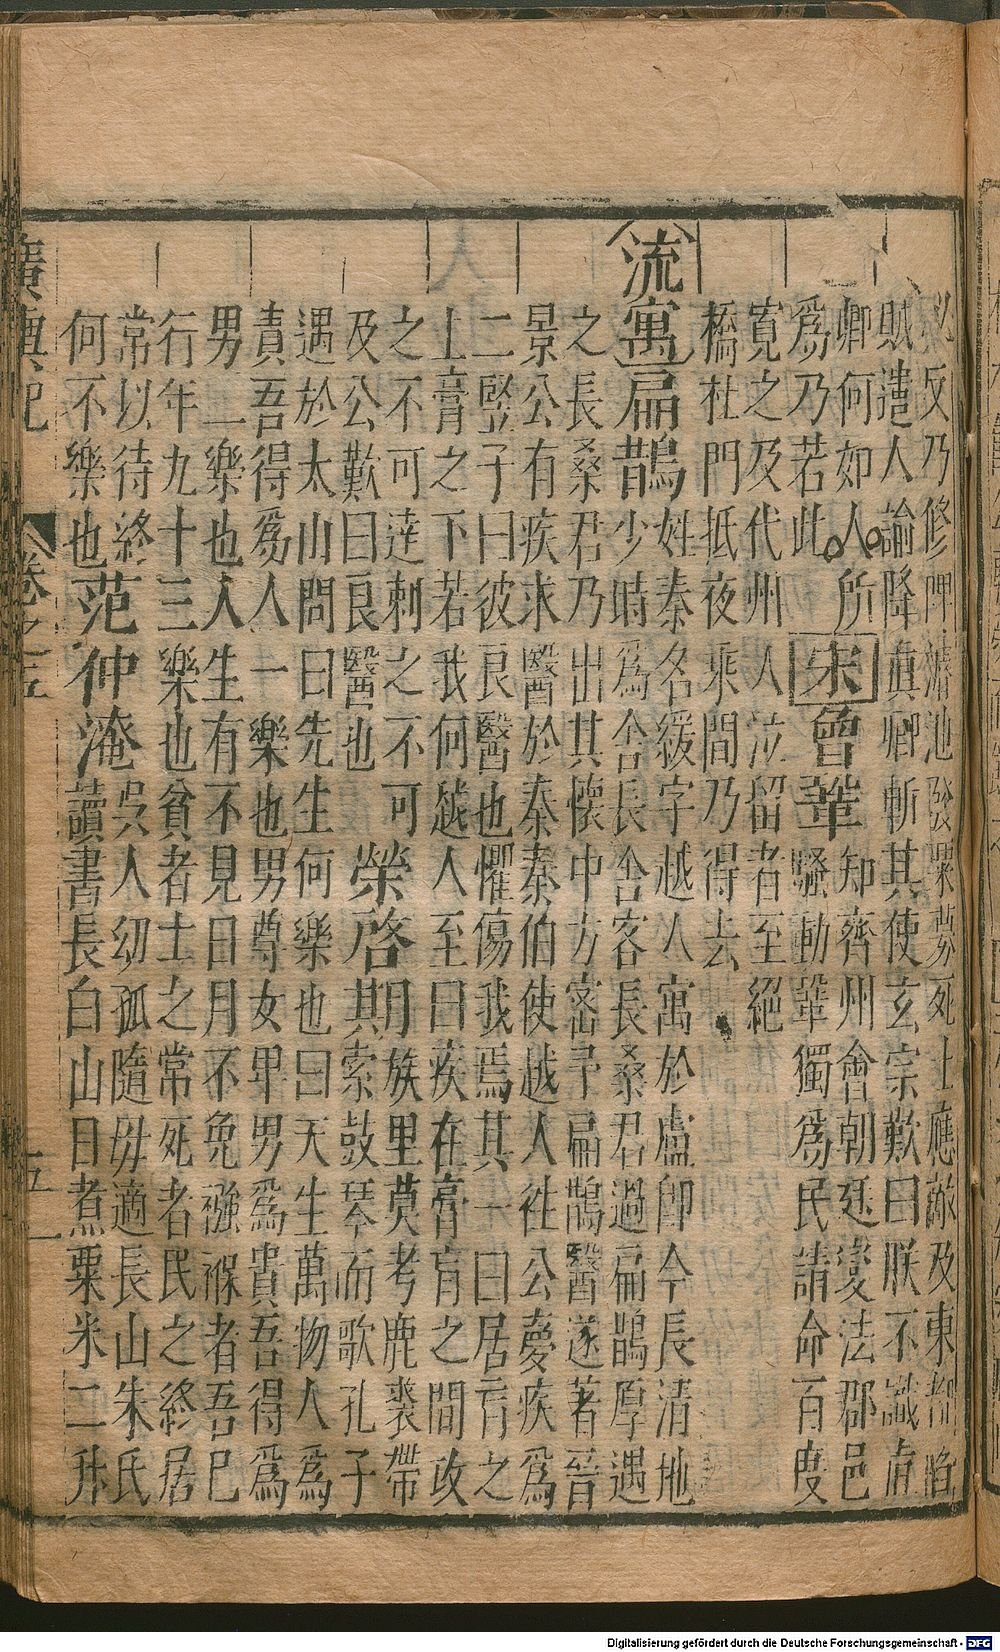 必反乃修埤濬池發粟募死士應敵及東都陷
賊遣人諭降真卿斬其使玄宗歎曰朕不識真
卿何如人所
爲乃若此
宋
曾鞏
知齊州會朝廷變法郡邑
騷動鞏獨爲民請命百度
寬之及代州人泣留者至絕
橋杜門抵夜乘間乃得去
流寓
扁鵲
姓秦名緩字越人寓於盧即今長清地
少時爲舍長舍客長桑君過扁鵲厚遇
之長桑君乃出其懷中方密予扁鵲醫遂著晉
景公有疾求醫於秦秦伯使越人徃公夢疾爲
二豎子曰彼良醫也懼傷我焉其一曰居肓之
上膏之下若我何越人至曰疾在膏肓之間攻
之不可達刺之不可
及公歎曰良醫也
榮啓期
族里莫考鹿裘帶
索鼓琴而歌孔子
遇於太山問曰先生何樂也曰天生萬物人爲
貴吾得爲人一樂也男尊女卑男爲貴吾得爲
男二樂也人生有不見日月不免襁褓者吾巳
行年九十三樂也貧者士之常死者民之終居
常以待終
何不樂也
范仲淹
吳人幼孤隨毋適長山朱氏
讀書長白山日煮粟米二升
廣輿記
卷之五
五一
Digitalisierung gefördert durch die Deutsche Forschungsgemeinschaft - DFG